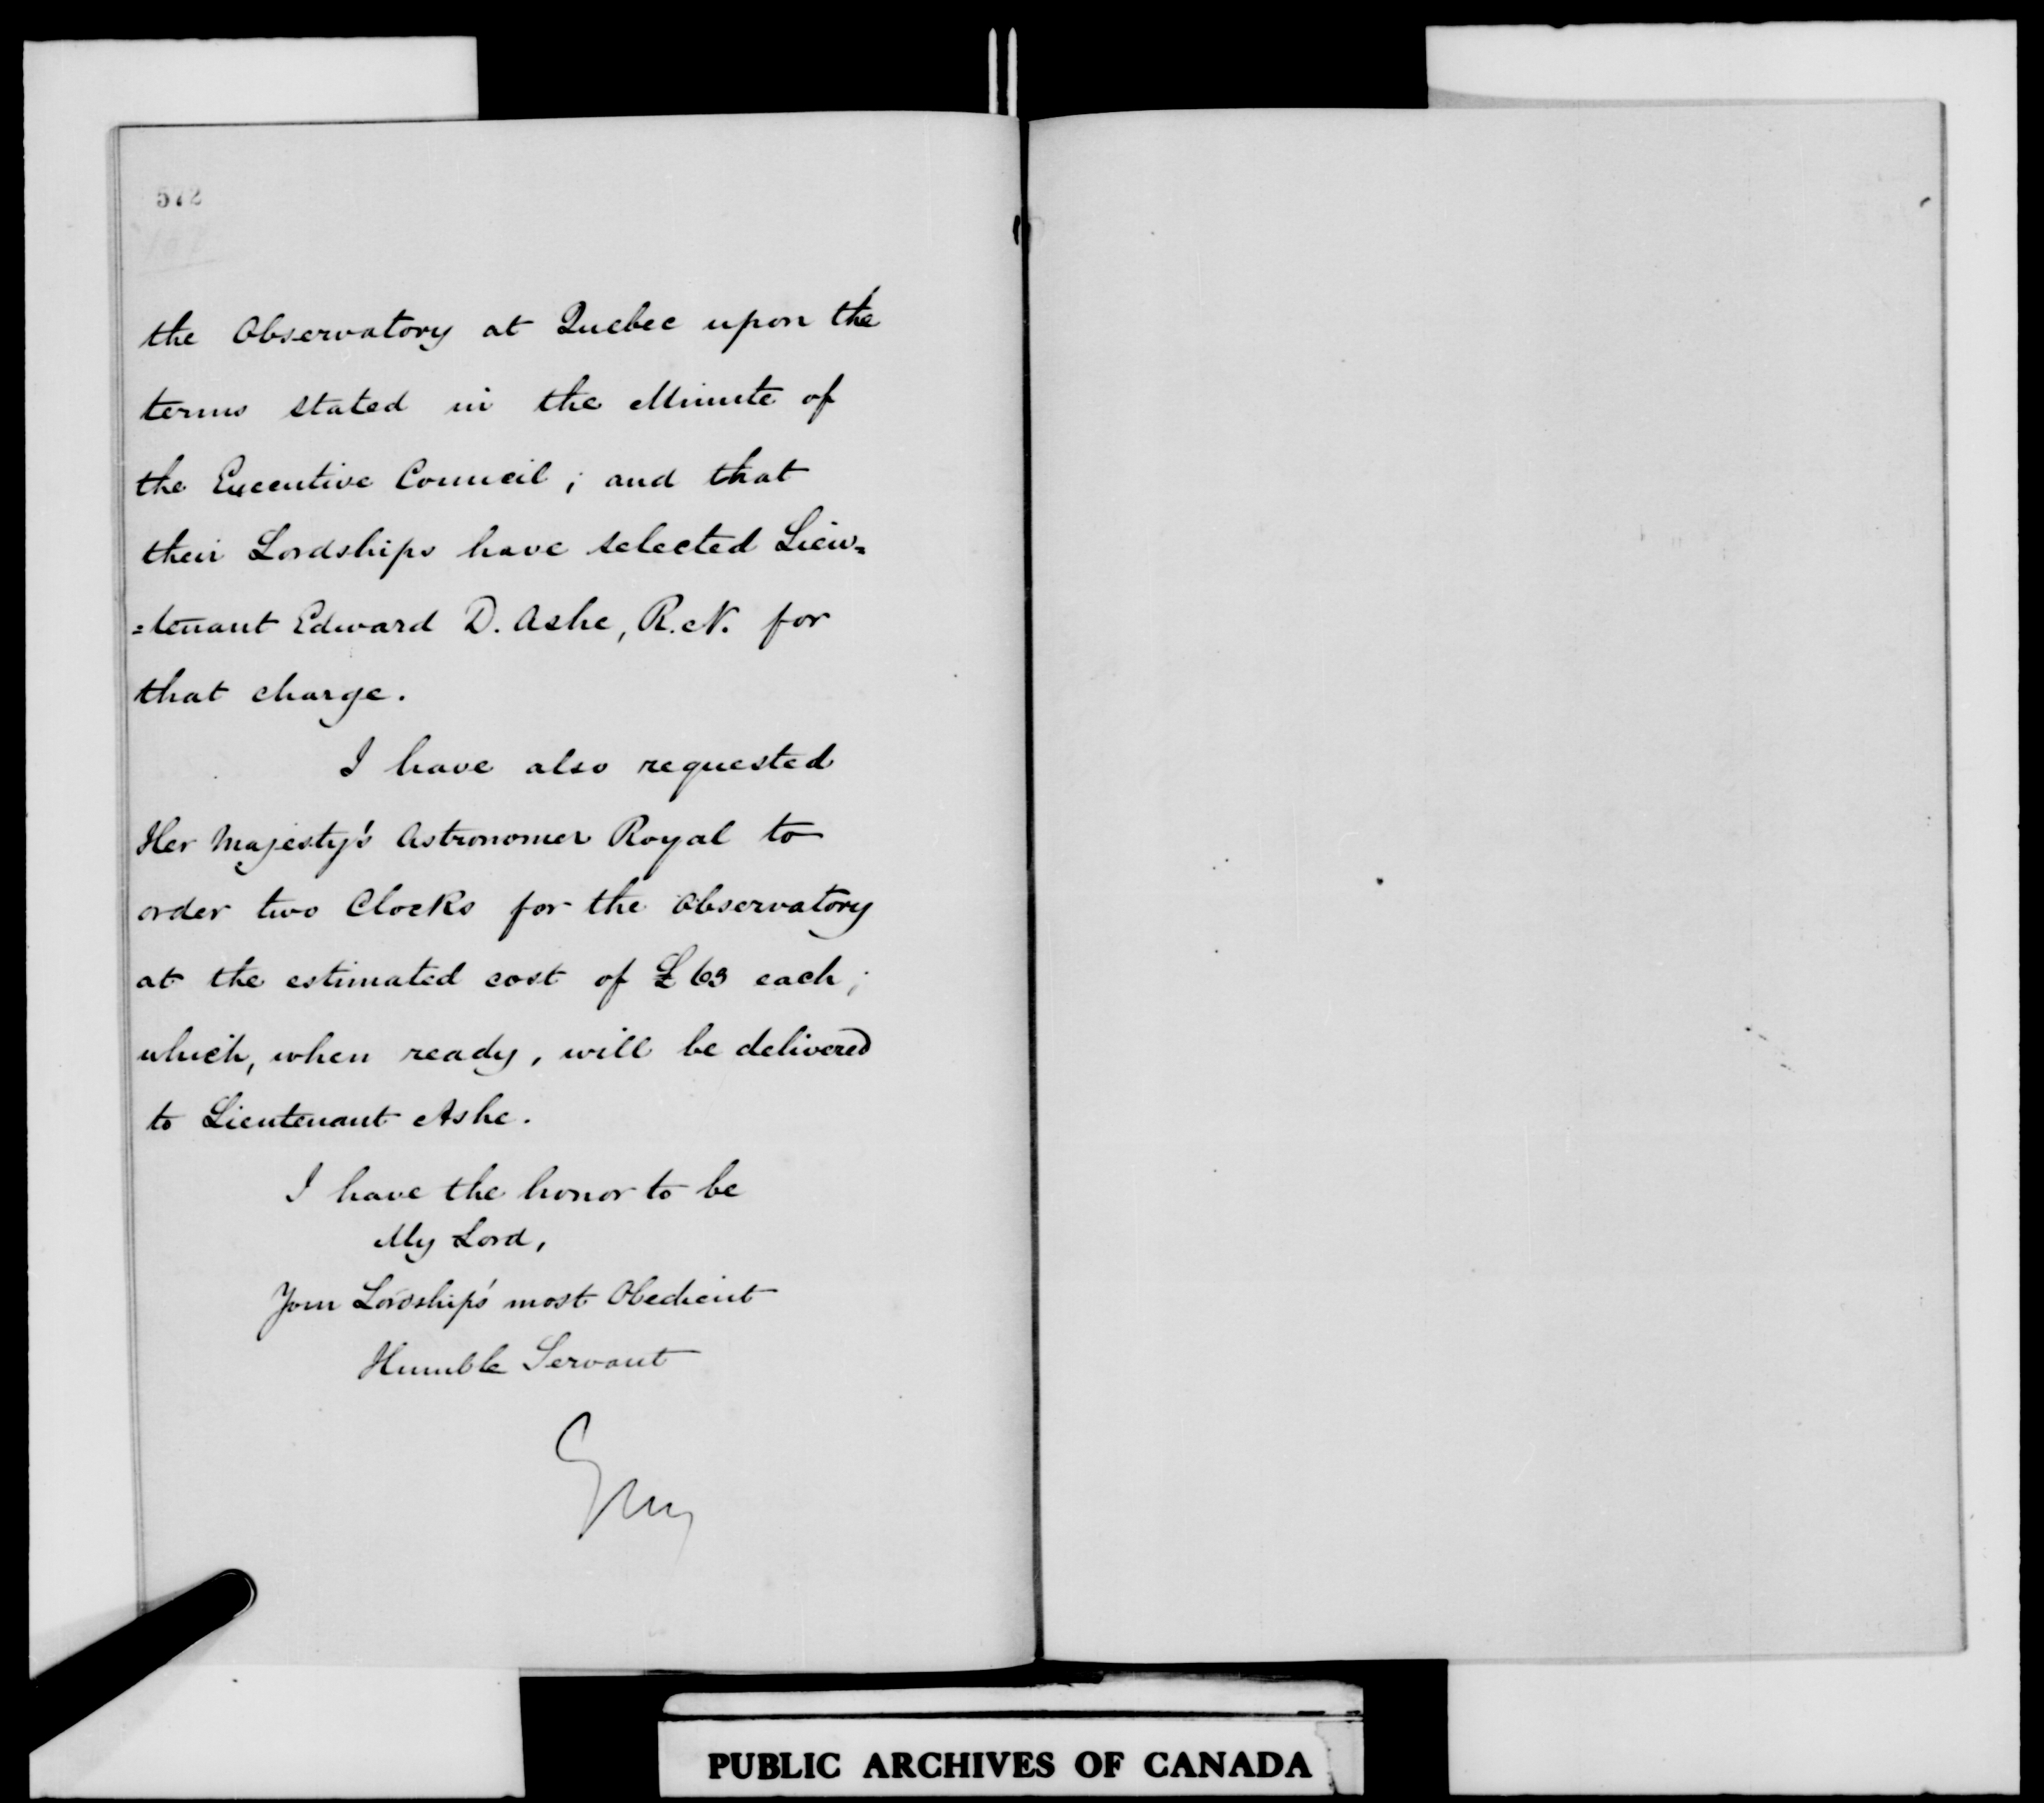 572
the Observatory at Quebec upon the
terms stated in the Minute of
the Executive Council; and that
their Lordships have selected Lieu=
=tenant Edward D. Ashe, R.N. for
that charge.
I have also requested
Her Majesty's Astronomer Royal to
order two Clocks for the Observatory
at the estimated cost of £63 each;
which, when ready, will be delivered
to Lieutenant Ashe.
I have the honor to be
My Lord,
Your Lordship's most Obedient
Humble Servant
PUBLIC ARCHIVES OF CANADA